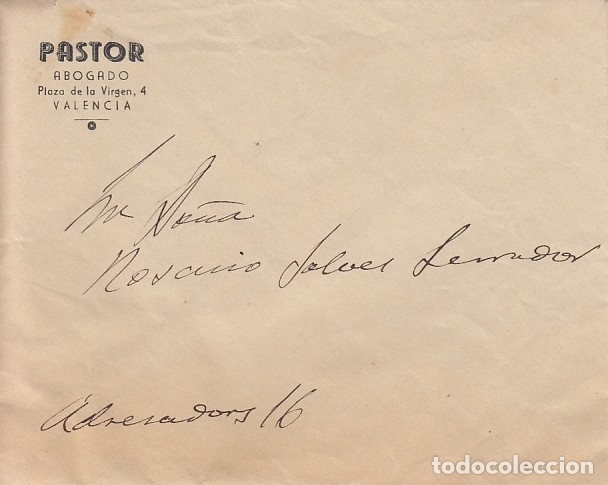 PASTOR
ABOGADO
Plaza de la Virgen, 4
VALENCIA
Doña
Rosario Galvel Serrador
Adresadors 16
todocoleccion